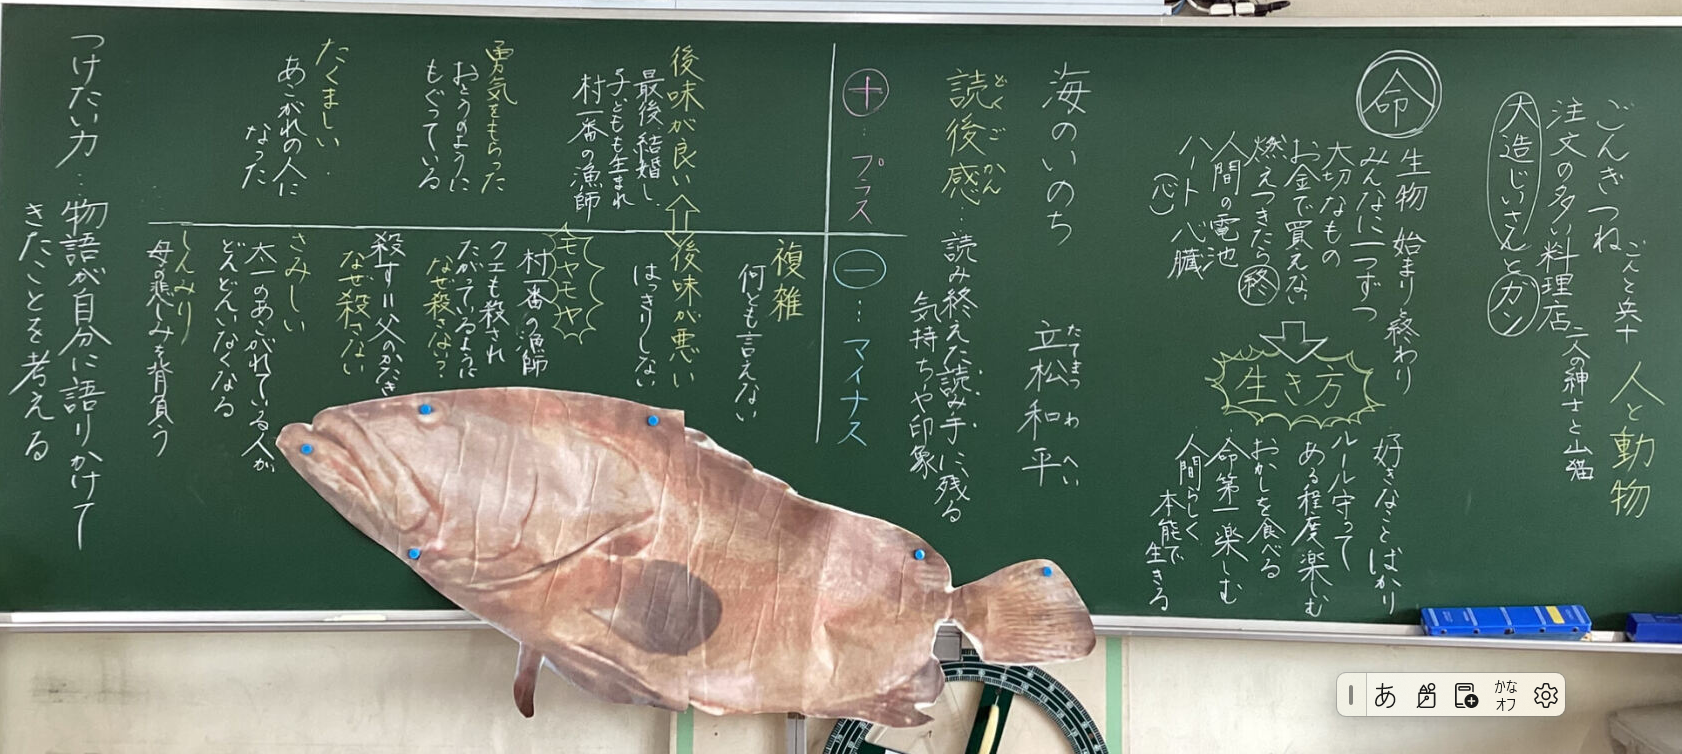 人と動物
ごんぎつね ごんと兵十
注文の多い料理店 二人の紳士と山猫
大造じいさんとガン
命
生物 始まりと終わり
みんなに一つずつ
大切なもの
お金で買えない
燃えつきたら終
人間の電池
ハート 心臓
(心)
生き方
好きなことばかり
ルール守って
ある程度楽しむ
おかしを食べる
命第一楽しむ
人間らしく
本能で
生きる
海のいのち
立松和平
たてまつ わ へい
読後感…読み終えた読み手に残る
どくご かん
気持ちや印象
+…プラス
後味が良い
最後結婚し、
子どもも生まれ
村一番の漁師
勇気をもらった
おとうのように
もぐっている
たくましい
あこがれの人に
なった
−…マイナス
複雑
何とも言えない
後味が悪い
はっきりしない
モヤモヤ
村一番の漁師
クエも殺され
たがっているように
なぜ殺さない?
殺す=父のかたき
なぜ殺さない
さみしい
太一のあこがれている人が
どんどんいなくなる
しんみり
母の悲しみを背負う
つけたい力…物語が自分に語りかけて
きたことを考える
あ
かな
オフ